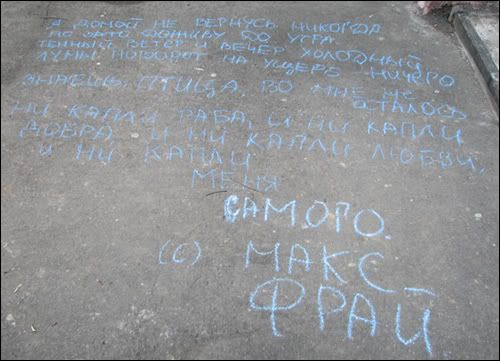 Я ДОМОЙ НЕ ВЕРНУСЬ НИКОГДА
НО ЗАТО ДОЖИВУ ДО УТРА
ТЕМНЫЙ ВЕТЕР И ВЕЧЕР ХОЛОДНЫЙ
ЛУНЫ ПОВОРОТ НА УЩЕРБ НИЧЕГО
ЗНАЕШЬ, ПТИЦА, ВО МНЕ НЕ
ОСТАЛОСЬ
НИ КАПЛИ РАБА, И НИ КАПЛИ
ДОБРА И НИ КАПЛИ ЛЮБВИ,
И НИ КАПЛИ
МЕНЯ
САМОГО.
(С) МАКС
ФРАЙ